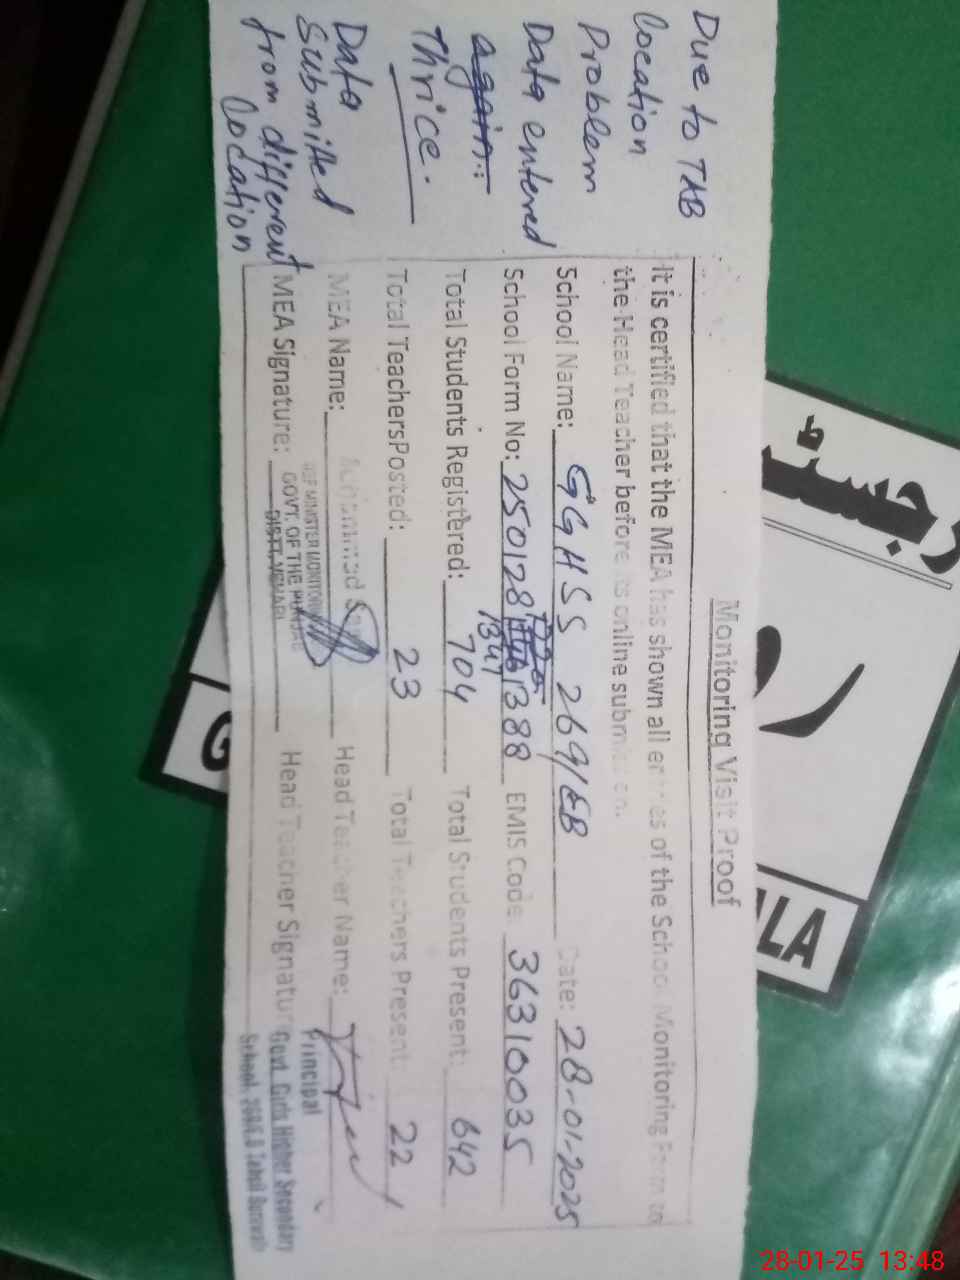 Monitoring Visit Proof
It is certified that the MEA has shown all entries of the School Monitoring Form to
the Head Teacher before its online submission.
School Name: GGHSS 269/EB Date: 28-01-2025
School Form No: 250128 1388 EMIS Code 36310035
1347
Total Students Registered: 704 Total Students Present: 642
Total TeachersPosted: 23 Total Teachers Present: 22
MEA Name: Head Teacher Name:
MEA Signature: Head Teacher Signature
MINISTER MONITORING
GOVT. OF THE PUNJAB
DISTT. VEHARI
Principal
Govt. Girls Higher Secondary
School, 269/E.B Tehsil Burewala
Due to TAB
Location
Problem
Data entered
again..
Thrice.
Data
Submitted
from different
Location
LA
G
28-01-25 13:48